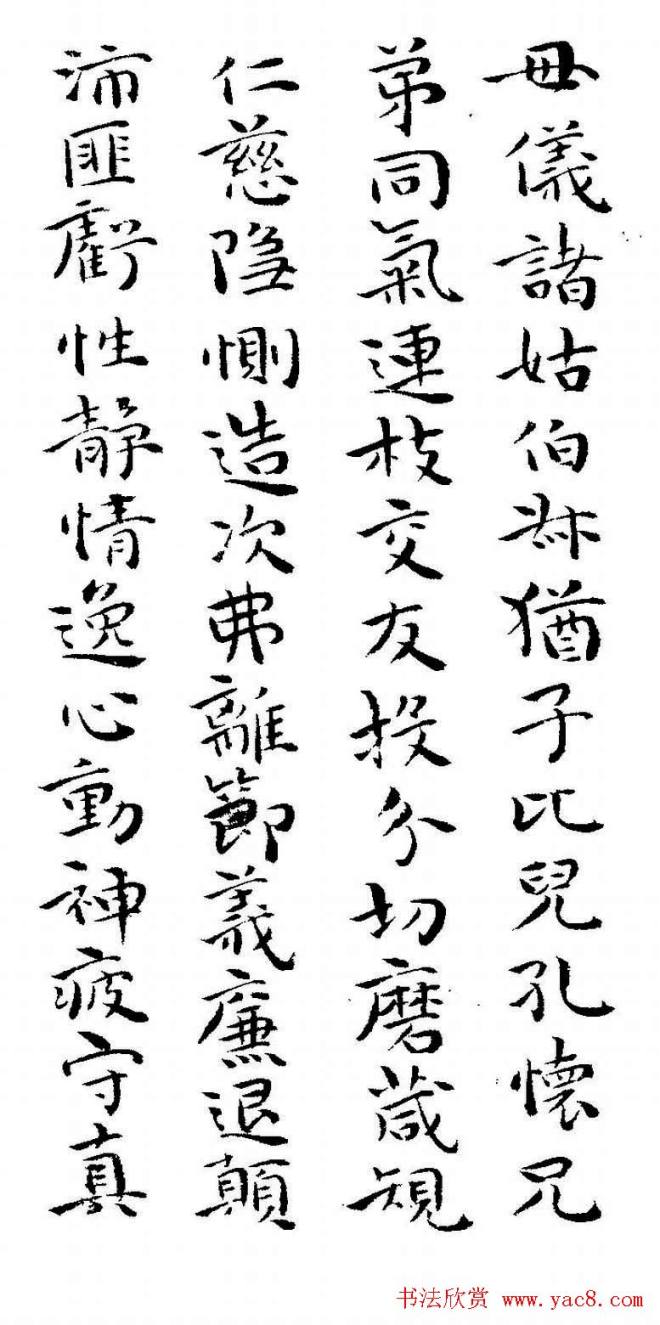 母儀諸姑伯叔猶子比兒孔懷兄
弟同氣連枝交友投分切磨葴規
仁慈隐惻造次弗離節義廉退顛
沛匪虧性静情逸心動神疲守真
书法欣赏 www.yac8.com